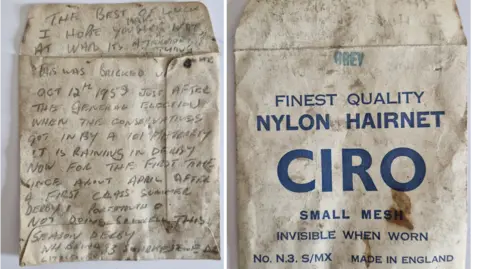 THE BEST OF LUCK
I HOPE YOU NOT
AT WAR ITS A
THIS WAS BURIED
OCT 12TH 1959 JUST AFTER
THE GENERAL ELECTION
WHEN THE CONSERVATIVES
GOT IN BY A 101
IT IS RAINING IN DERBY
NOW FOR THE FIRST TIME
SINCE ABOUT APRIL AFTER
A FIRST CLASS SUMMER
DERBY PORTSMOUTH 0
NOT DOING WELL THIS
SEASON DERBY
GREY
FINEST QUALITY
NYLON HAIRNET
CIRO
SMALL MESH
INVISIBLE WHEN WORN
No. N.3. S/MX MADE IN ENGLAND